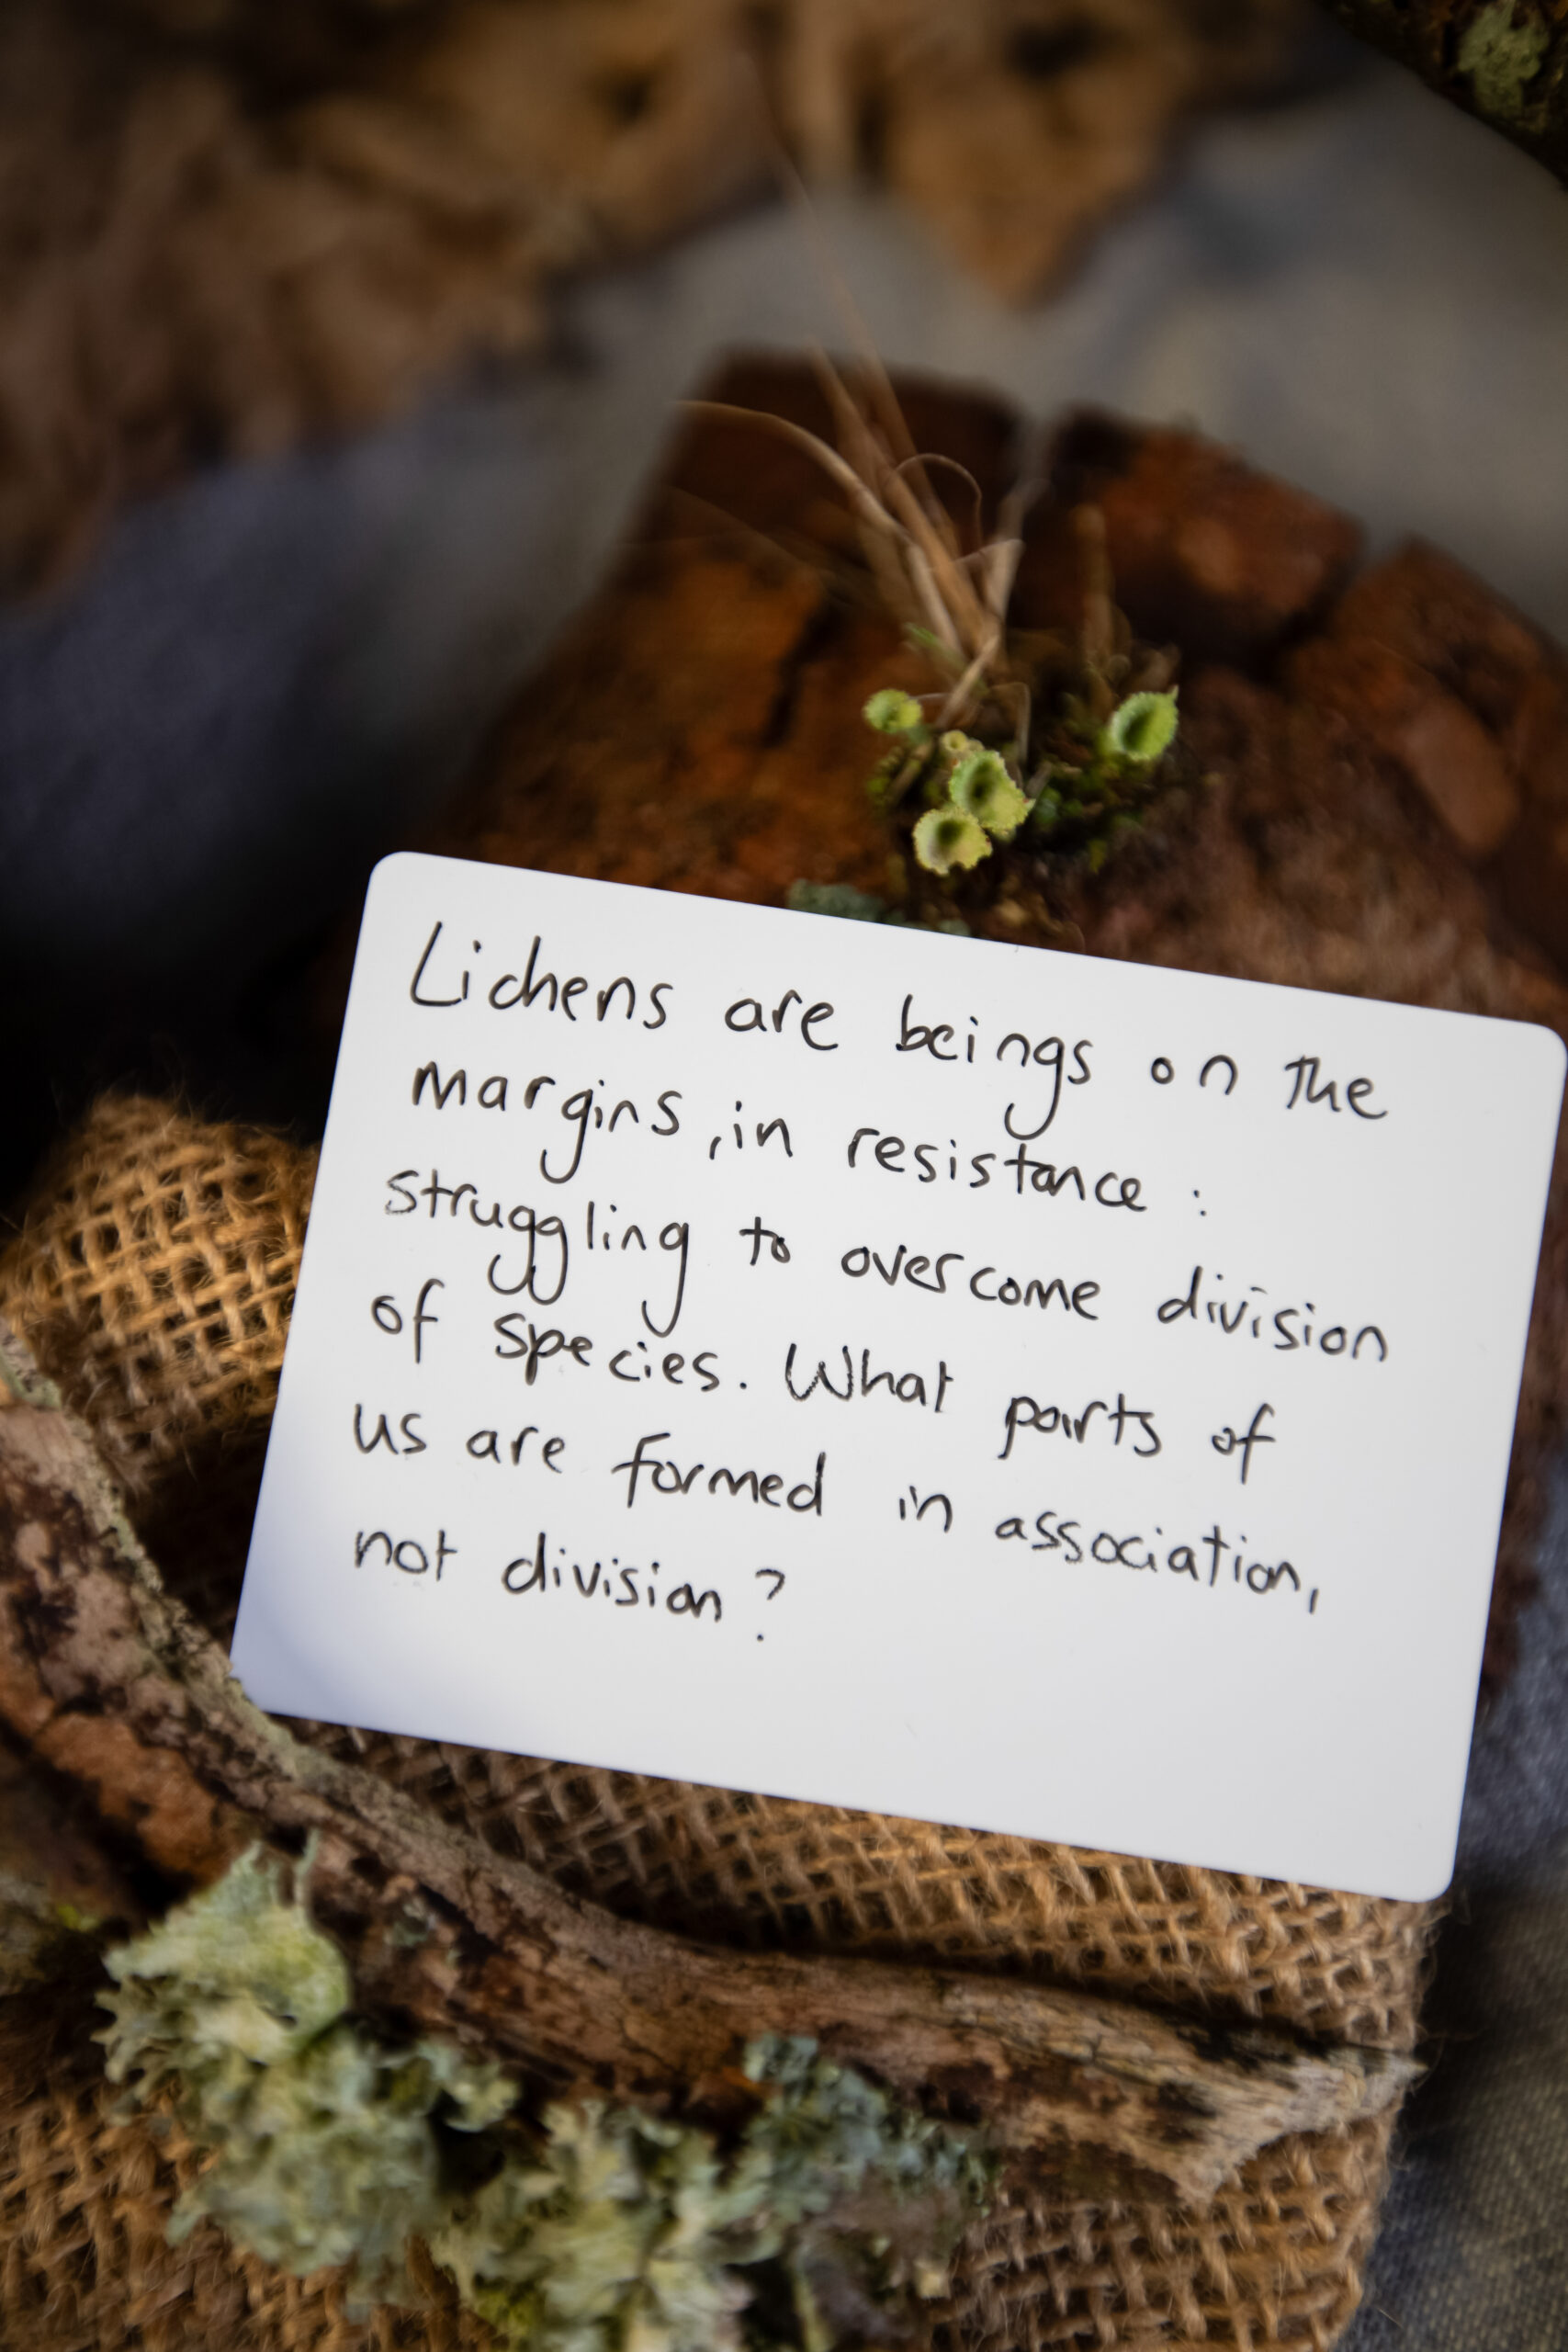 Lichens are beings on the
margins, in resistance:
struggling to overcome division
of species. What parts of
us are formed in association,
not division?